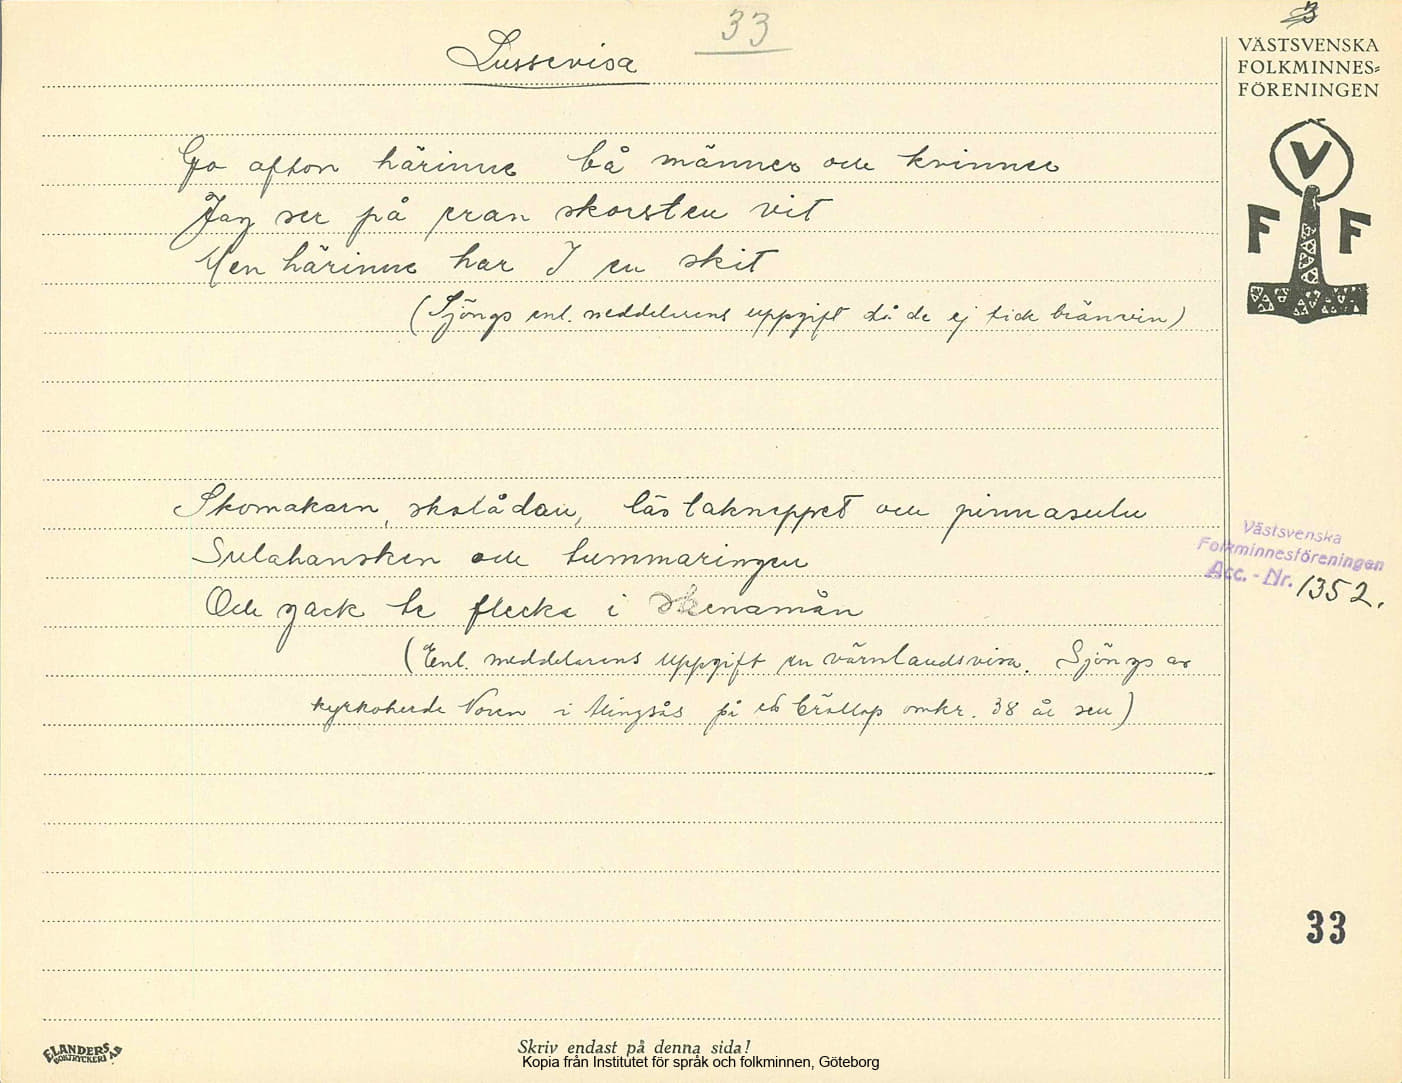 33
Lussevisa
Go afton härinne bå männer och kvinner
Jag ser på eran skorsten vit
Men härinne har I en skit
(Sjöngs enl. meddelarens uppgift då de ej fick bränvin)
Skomakarn, skolådan, läs taknippet och pinnasulu
Sulahansken och tummaringen
Och gack te flecka i skenamån
(Enl. meddelarens uppgift en värmlandsvisa. Sjöngs av
kyrkoherde Noren i Alingsås på ett bröllop omkr. 38 år sen)
3
VÄSTSVENSKA
FOLKMINNES=
FÖRENINGEN
V
F F
Västsvenska
Folkminnesföreningen
Acc. - Nr. 1352.
33
ELANDERS
BOKTRYCKERI AB
Skriv endast på denna sida!
Kopia från Institutet för språk och folkminnen, Göteborg